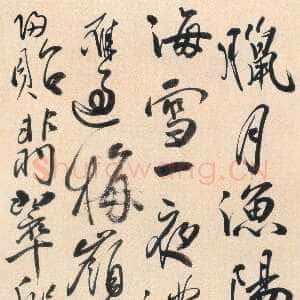 臘月漁陽
海雪一夜
過梅嶺
歸貽翡翠
Shufawang.CN